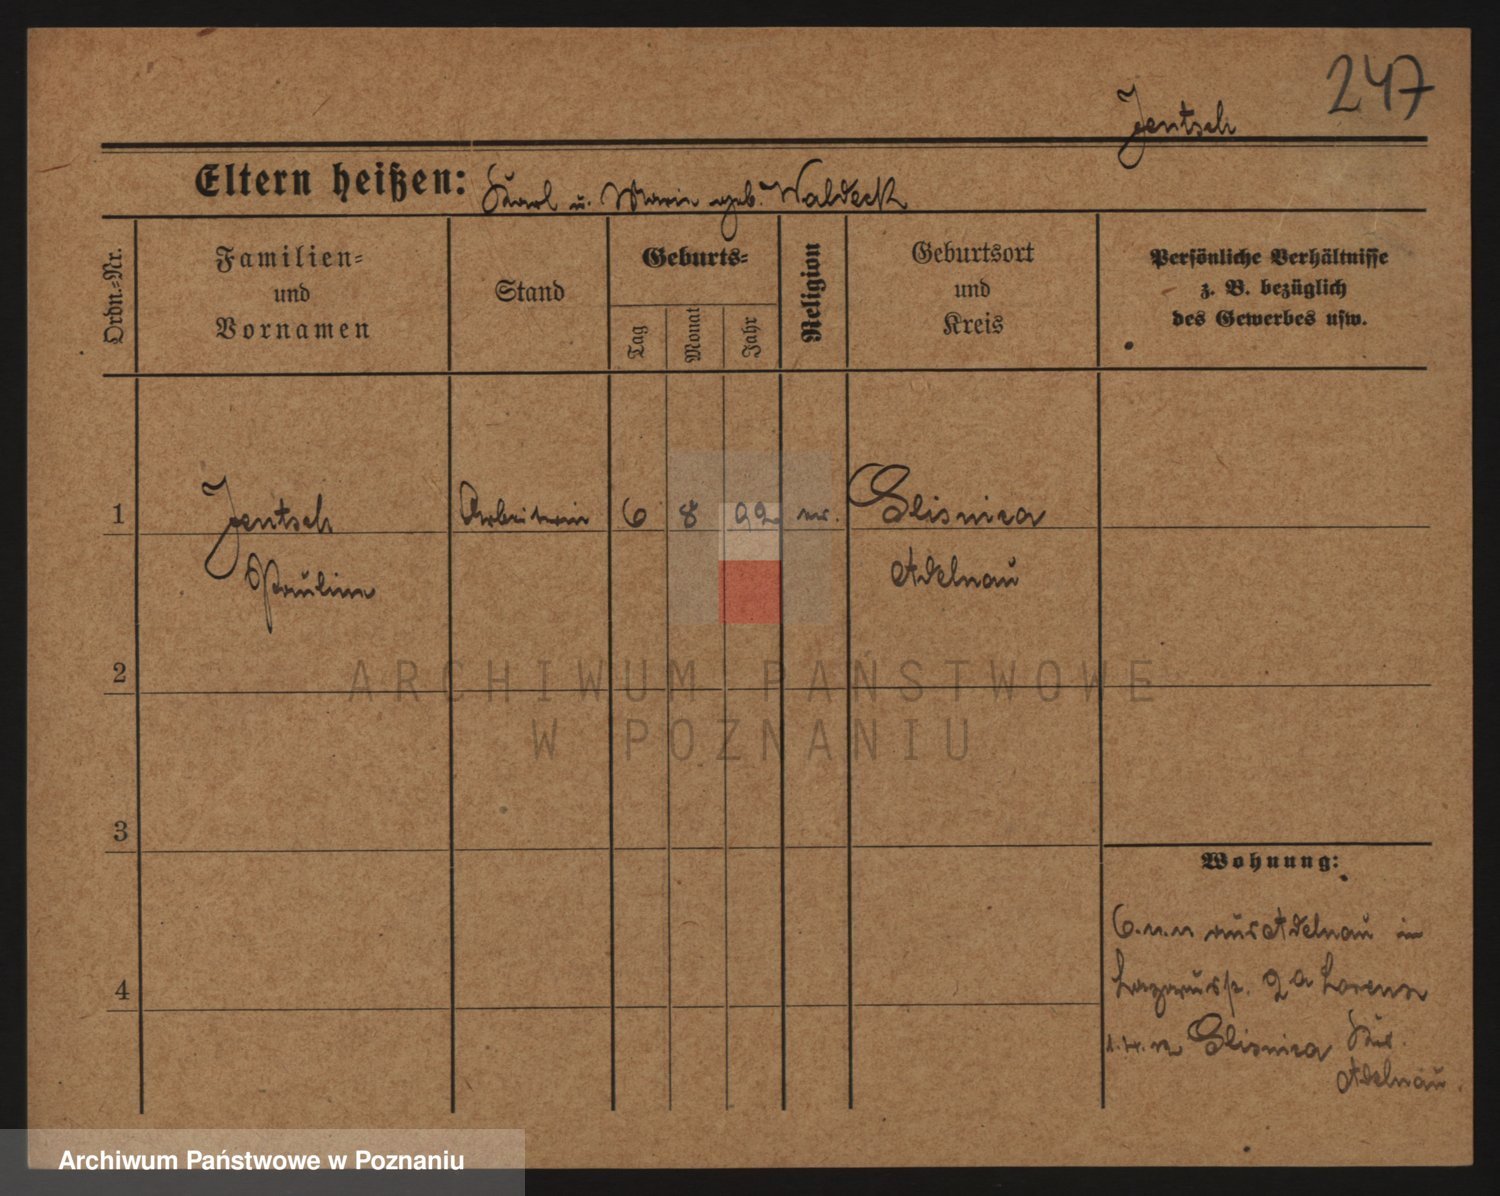 247
Jentsch
Eltern heißen: Karl u. Marie geb. Waldeck
Ordn.-Nr.
Familien-
und
Vornamen
Stand
Geburts-
Tag
Monat
Jahr
Religion
Geburtsort
und
Kreis
Persönliche Verhältnisse
z. B. bezüglich
des Gewerbes usw.
1
Jentsch
Pauline
Arbeiterin
6
8
92
ev.
Glisnica
Adelnau
2
3
4
Wohnung:
aus Adelnau in
Lazarusstr. 2a Lorenz
Glisnica Krs.
Adelnau.
ARCHIWUM PAŃSTWOWE
W POZNANIU
Archiwum Państwowe w Poznaniu